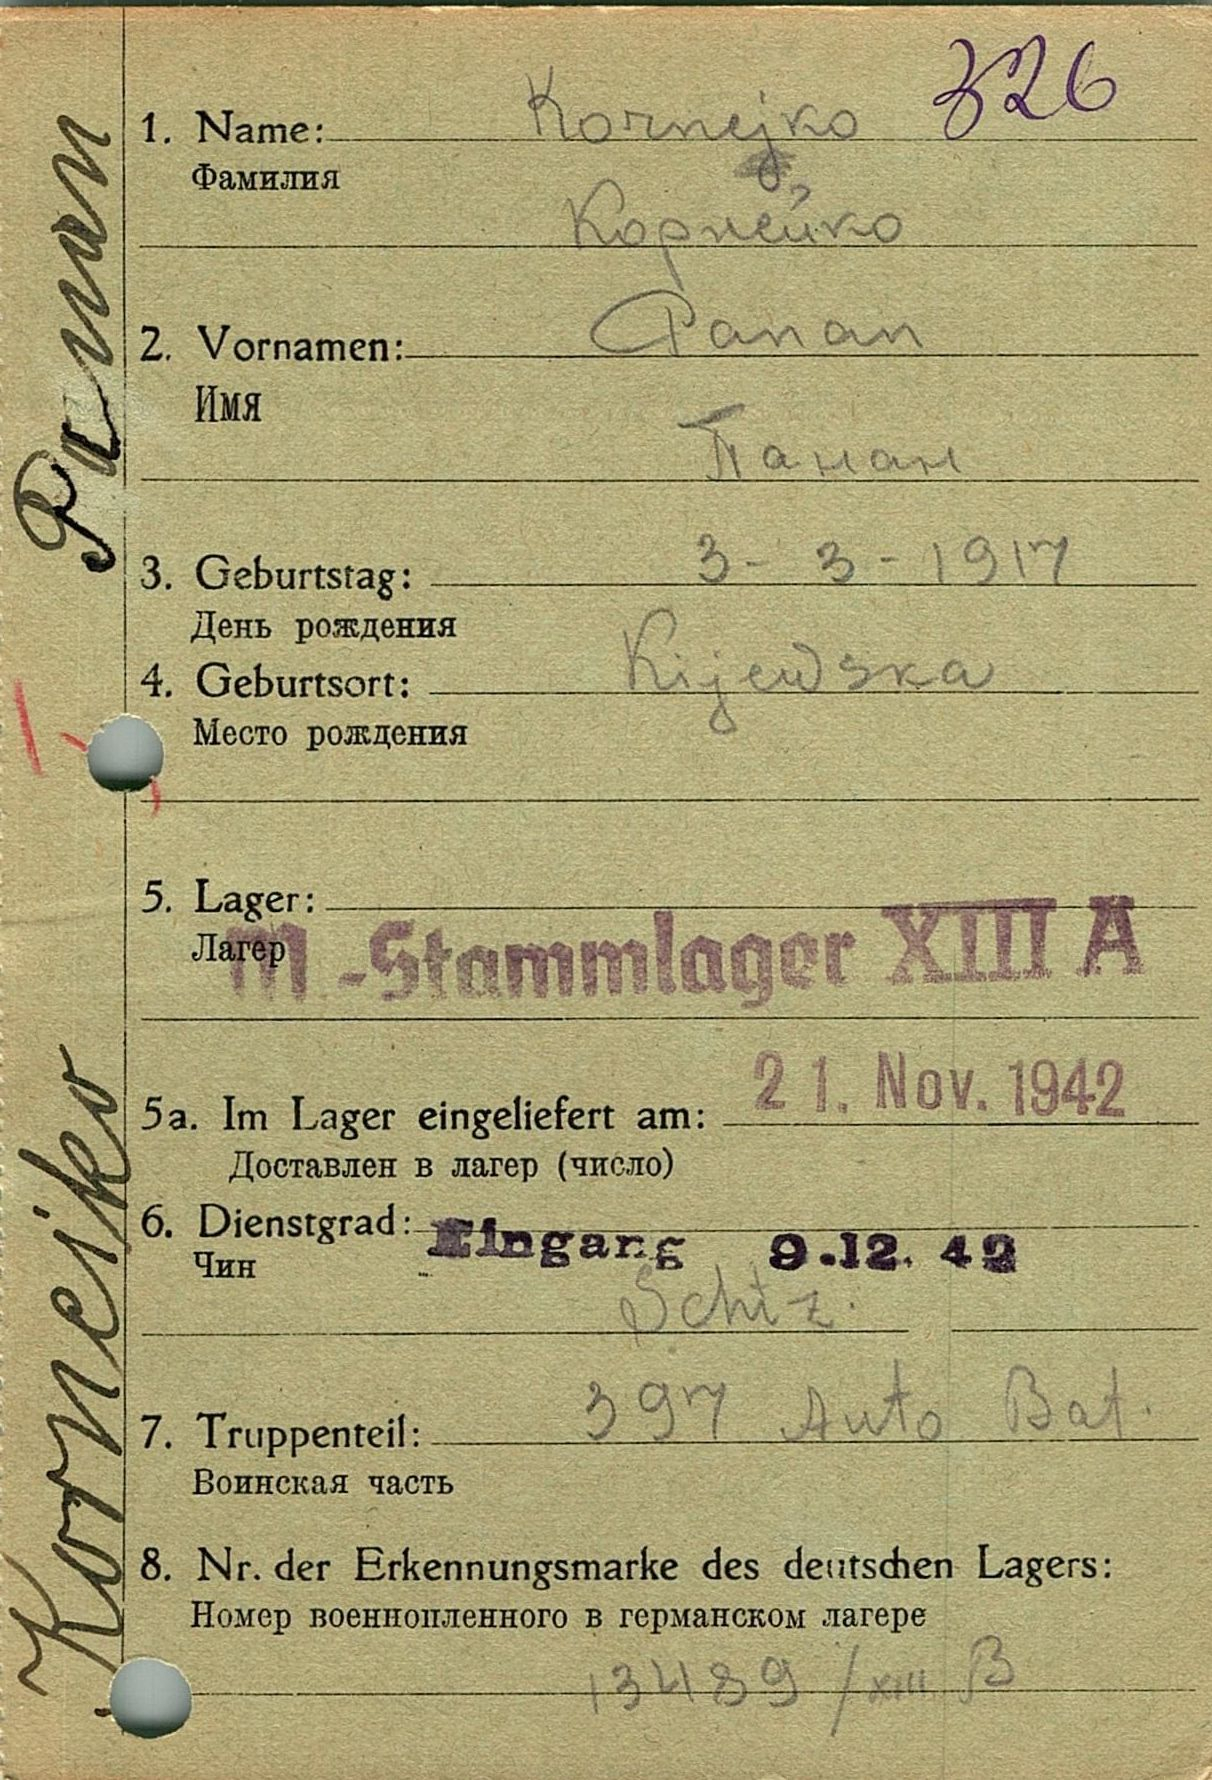 326
1. Name: Kornejko
Фамилия
Корнейко
2. Vornamen: Panan
Имя
Панан
3. Geburtstag: 3-3-1917
День рождения
4. Geburtsort: Kijewska
Место рождения
5. Lager:
Лагер
M-Stammlager XIII A
5a. Im Lager eingeliefert am: 21. Nov. 1942
Доставлен в лагер (число)
6. Dienstgrad: Eingang 9.12.42
Чин
Schtz.
7. Truppenteil: 397 Auto Bat.
Воинская часть
8. Nr. der Erkennungsmarke des deutschen Lagers:
Номер военнопленного в германском лагере
13489 / XIII B
Korneiko Panan